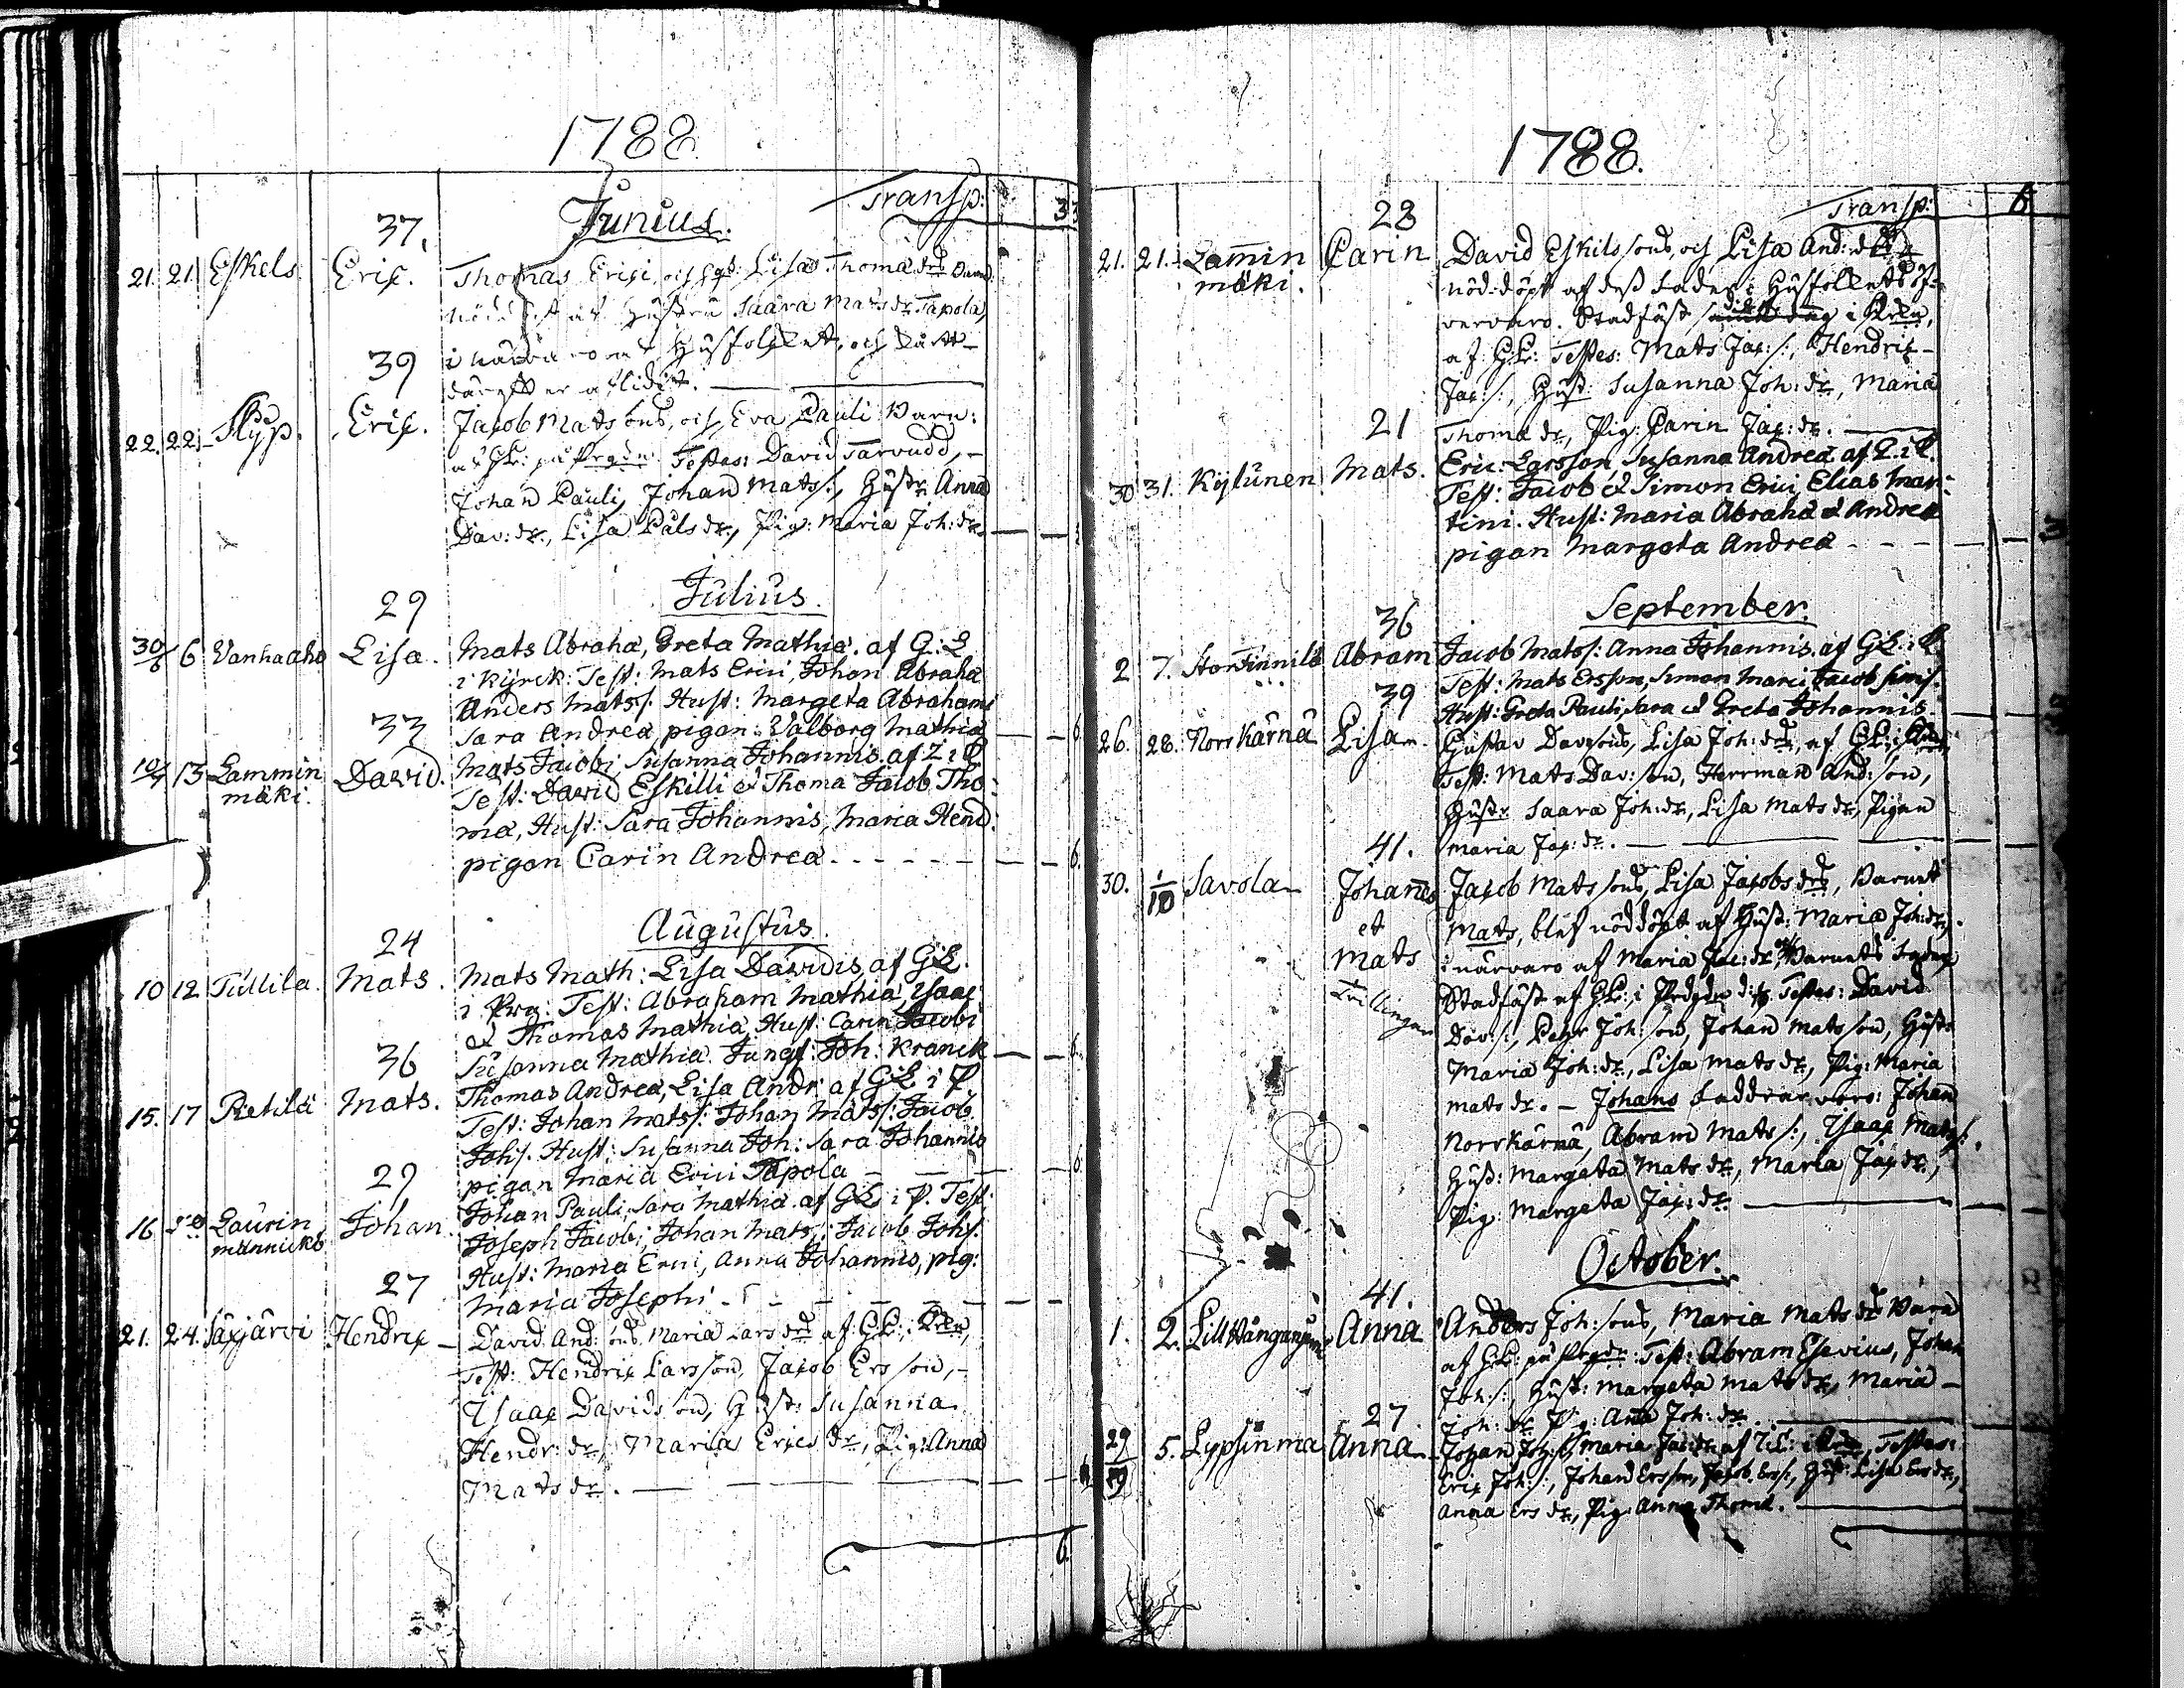 1788
Junius. Transp:
37.
21. 21. Eskels. Eric. Thomas Erici, och Lisa Thomæ dr. Barn
nöddöpt af Hustru Saara Mats dr. Tapola,
i närvaro af Husfolket, och
39
därefter aflidit.
22. 22. Flyp. Eric. Jacob Mats sons, och Eva Pauli Barn:
af GL: på Prgdn. Testes: David Tarvudd,
Johan Pauli, Johan Mats/:, Hustr. Anna
Dav: dr., Lisa Påls dr., Pig: Maria Joh: dr.
Julius.
29
30/6 6 Vanhaaho Lisa. Mats Abrahæ, Greta Mathiæ. af G: L
i Kyrck: Test: Mats Erici, Johan Abrahæ
Anders Mats/. Hust: Margeta Abrahami
33
Sara Andreæ pigan: Valborg Mathiæ
10/7 13 Lammin mäki. David. Mats Jacobi, Susanna Johannis. af Z i P
Test: David Eskilli & Thoma Jacob Tho:
mæ, Hust: Sara Johannis, Maria Hend:
pigan Carin Andreæ 6.
Augustus.
24
10 12 Tullila. Mats. Mats Math: Lisa Davidis, af GL.
i Prg: Test: Abraham Mathiæ, Isaac
& Thomas Mathiæ, Hust: Carin Jacobi
36
Susanna Mathiæ. Jungf: Joh: Kranck
15. 17 Pietilä Mats. Thomas Andreæ, Lisa Andr: af GL i P.
Test: Johan Mats/: Johan Mats/: Jacob
Joh/. Hust: Susanna Joh: Sara Johannis
29
pigan Maria Erici Tapola
16 Laurin männickö Johan Johan Pauli, Sara Mathiæ af GL i P. Test:
Joseph Jacobi, Johan Mats/: Jacob Joh/.
Hust: Maria Erici, Anna Johannis, pig:
27
Maria Josephi
21. 24. Säxjärvi Hendric David And: sons, Maria Lars dr. af GL: i
Test: Hendric Larsson, Jacob Ers son,
Isaac Davids son, Hust: Susanna
Hendr: dr., Maria Erics dr., Pig: Anna
Mats dr.
6.
1788.
Transp: 6
28
21. 21. Lamin mäki. Carin David Eskils sons, och Lisa And: dr.
nöd: döpt af dess fader i Husfolkets öf-
vervaro. Stadfäst i
af GL: Testes: Mats Jac:/:, Hendric
Jac:/:, Hust: Susanna Joh: dr., Maria
21
Thomæ dr., Pig: Carin Jac: dr.
30 31. Kylunen Mats. Eric: Larsson, Susanna Andreæ af Z. i P.
Test: Jacob & Simon Erici, Elias Mar-
tini. Hust: Maria Abrahæ & Andreæ
pigan Margeta Andreæ
September.
36
2 7. Abram Jacob Mats/: Anna Johannis. af GL: i P
Test: Mats Ersson, Simon Marci, Jacob Sim/.
39
Hust: Greta Pauli, Sara & Greta Johannis
26. 28. Norrkärnä Lisa. Gustav Davsons, Lisa Joh: dr., af GL: i
Test: Mats Dav: son, Herrman And: son,
Hustr. Saara Joh: dr., Lisa Mats dr., Pigan
41.
Maria Jac: dr.
30. 1/10 Savola Johannes Jacob Mats sons, Lisa Jacobs dr., Barnet
et Mats, blef nöddöpt af Hust: Maria Joh: dr.,
Mats i närvaro af Maria Jac: dr., Barnets
Tvillingar Stadfäst af GL: i Testes: David
Dav:/:, Pehr Joh: son, Johan Mats son, Hustr
Maria Joh: dr., Lisa Mats dr., Pig: Maria
Mats dr. – Johans Faddrar voro: Johan
Norrkärnä, Abram Mats/:, Isaac Mats/:,
Hust: Margata Mats dr., Maria Jac: dr.,
Pig: Margeta Jac: dr.
October.
41.
1. 2. Anna Anders Joh: sons, Maria Mats dr. Barn
af GL: på Prgdn: Test: Abram Johan
Joh:/:, Hust: Margeta Mats dr., Maria
27.
Joh: dr. Pig: Anna Joh: dr.
29/9 5. Lypsinma Anna Johan Maria Jac: dr. af Testes:
Eric Joh:/:, Johan Ersson, Jacob Ers/:, Hust: Lisa Ers dr.,
Anna Ers dr., Pig: Anna Thomæ.